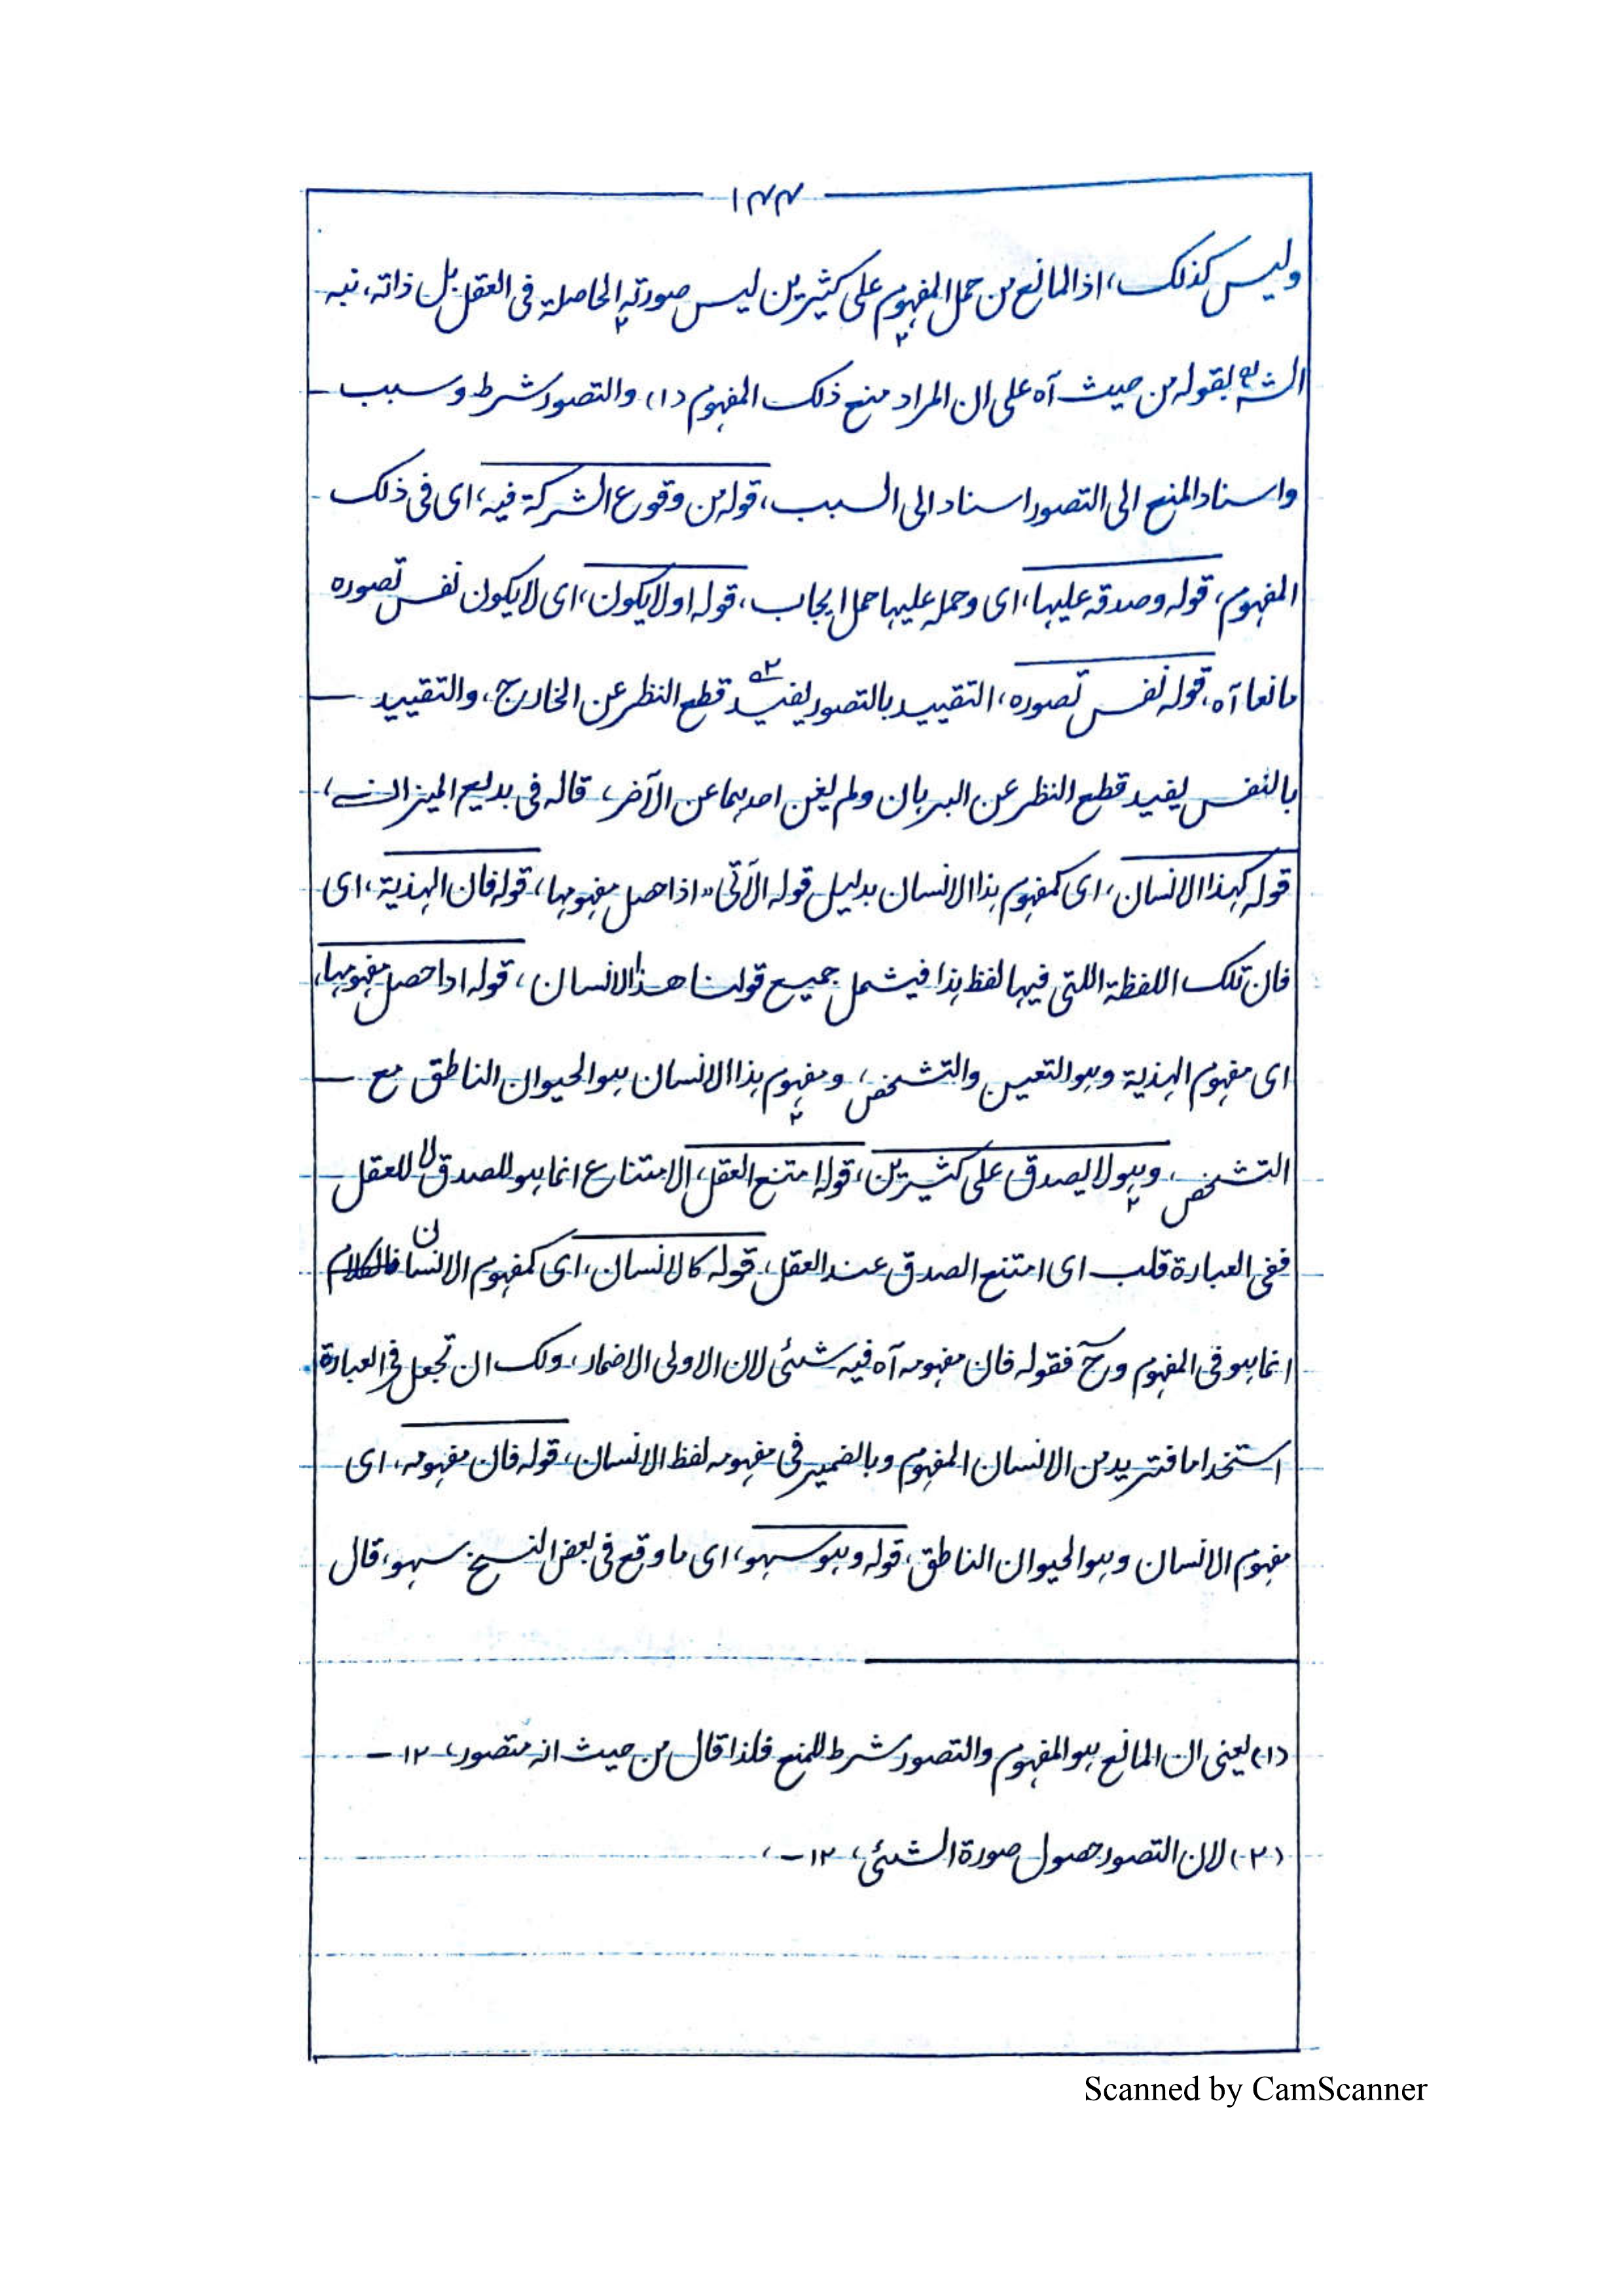 ١٤٤
وليس كذلك، اذ المانع من حمل المفهوم على كثيرين ليس صورته الحاصلة فى العقل بل ذاته، نبه
بقوله من حيث آه على ان المراد منع ذلك المفهوم (١) والتصور شرط وسبب –
واسناد المنع الى التصور اسناد الى السبب، قوله من وقوع الشركة فيه، اى فى ذلك
المفهوم، قوله وصدقه عليها، اى وحمله عليها حمل ايجاب، قوله او لا يكون، اى لا يكون نفس تصوره
مانعا آه، قوله نفس تصوره، التقييد بالتصور يفيد ٢ قطع النظر عن الخارج، والتقييد –
بالنفس يفيد قطع النظر عن البرهان ولم يغن احدهما عن الآخر، قاله فى بديع الميزان،
قوله كهذا الانسان، اى كمفهوم هذا الانسان بدليل قوله الآتى "اذا حصل مفهومها، قوله فان الهذية، اى
فان تلك اللفظة اللتى فيها لفظ هذا فيشمل جميع قولنا هذا الانسان، قوله اذا حصل مفهومها،
اى مفهوم الهذية وهو التعين والتشخص، ومفهوم هذا الانسان هو الحيوان الناطق مع –
التشخص، وهو لا يصدق على كثيرين، قوله امتنع العقل، الامتناع انما هو للصدق لا للعقل
ففى العبارة قلب اى امتنع الصدق عند العقل، قوله كالانسان، اى كمفهوم الانسان فالكلام
انما هو فى المفهوم ورح فقوله فان مفهومه آه فيه شئى لان الاولى الاضمار، ولك ان تجعل فى العبارة
استخداما فتريد من الانسان المفهوم وبالضمير فى مفهومه لفظ الانسان، قوله فان مفهومه، اى
مفهوم الانسان وهو الحيوان الناطق، قوله وهو سهو، اى ما وقع فى بعض النسخ سهو، قال
(١) يعنى ان المانع هو المفهوم والتصور شرط للمنع فلذا قال من حيث انه متصور، ١٢ –
(٢) لان التصور حصول صورة الشئى، ١٢ – ،
Scanned by CamScanner